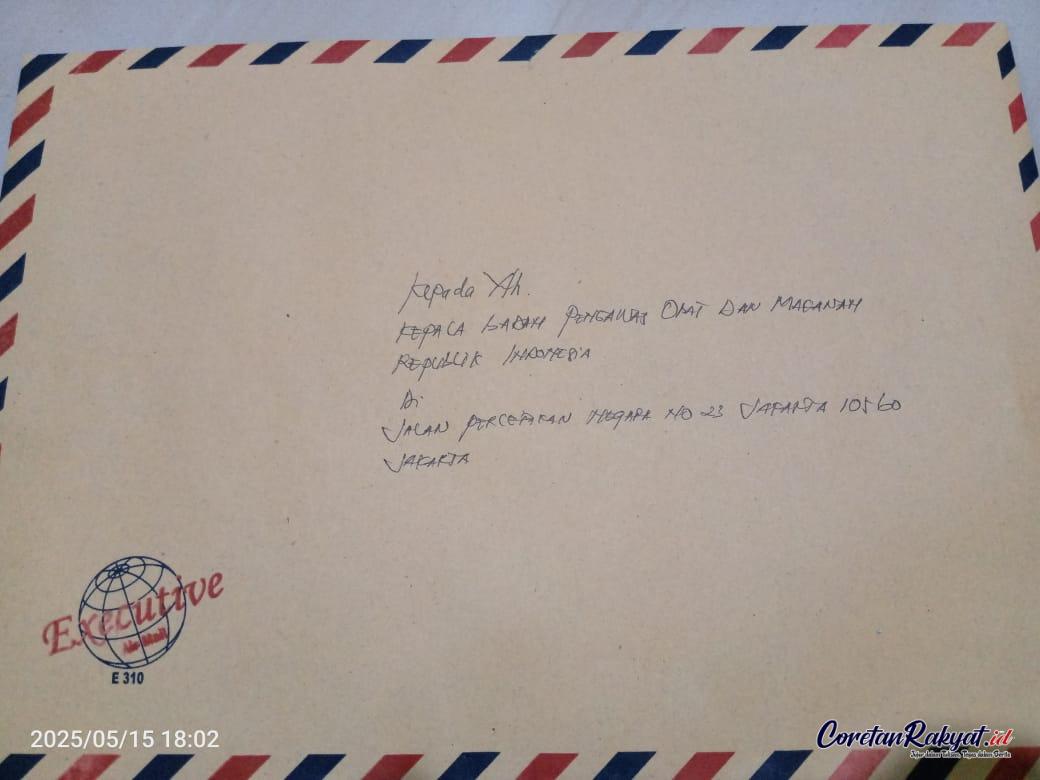 Kepada Yth.
KEPALA BADAN PENGAWAS OBAT DAN MAKANAN
REPUBLIK INDONESIA
Di
JALAN PERCETAKAN NEGARA NO 23 JAKARTA 10560
JAKARTA
Executive
Air Mail
E 310
2025/05/15 18:02
CoretanRakyat.id
Jujur dalam Tulisan, Tegas dalam Berita